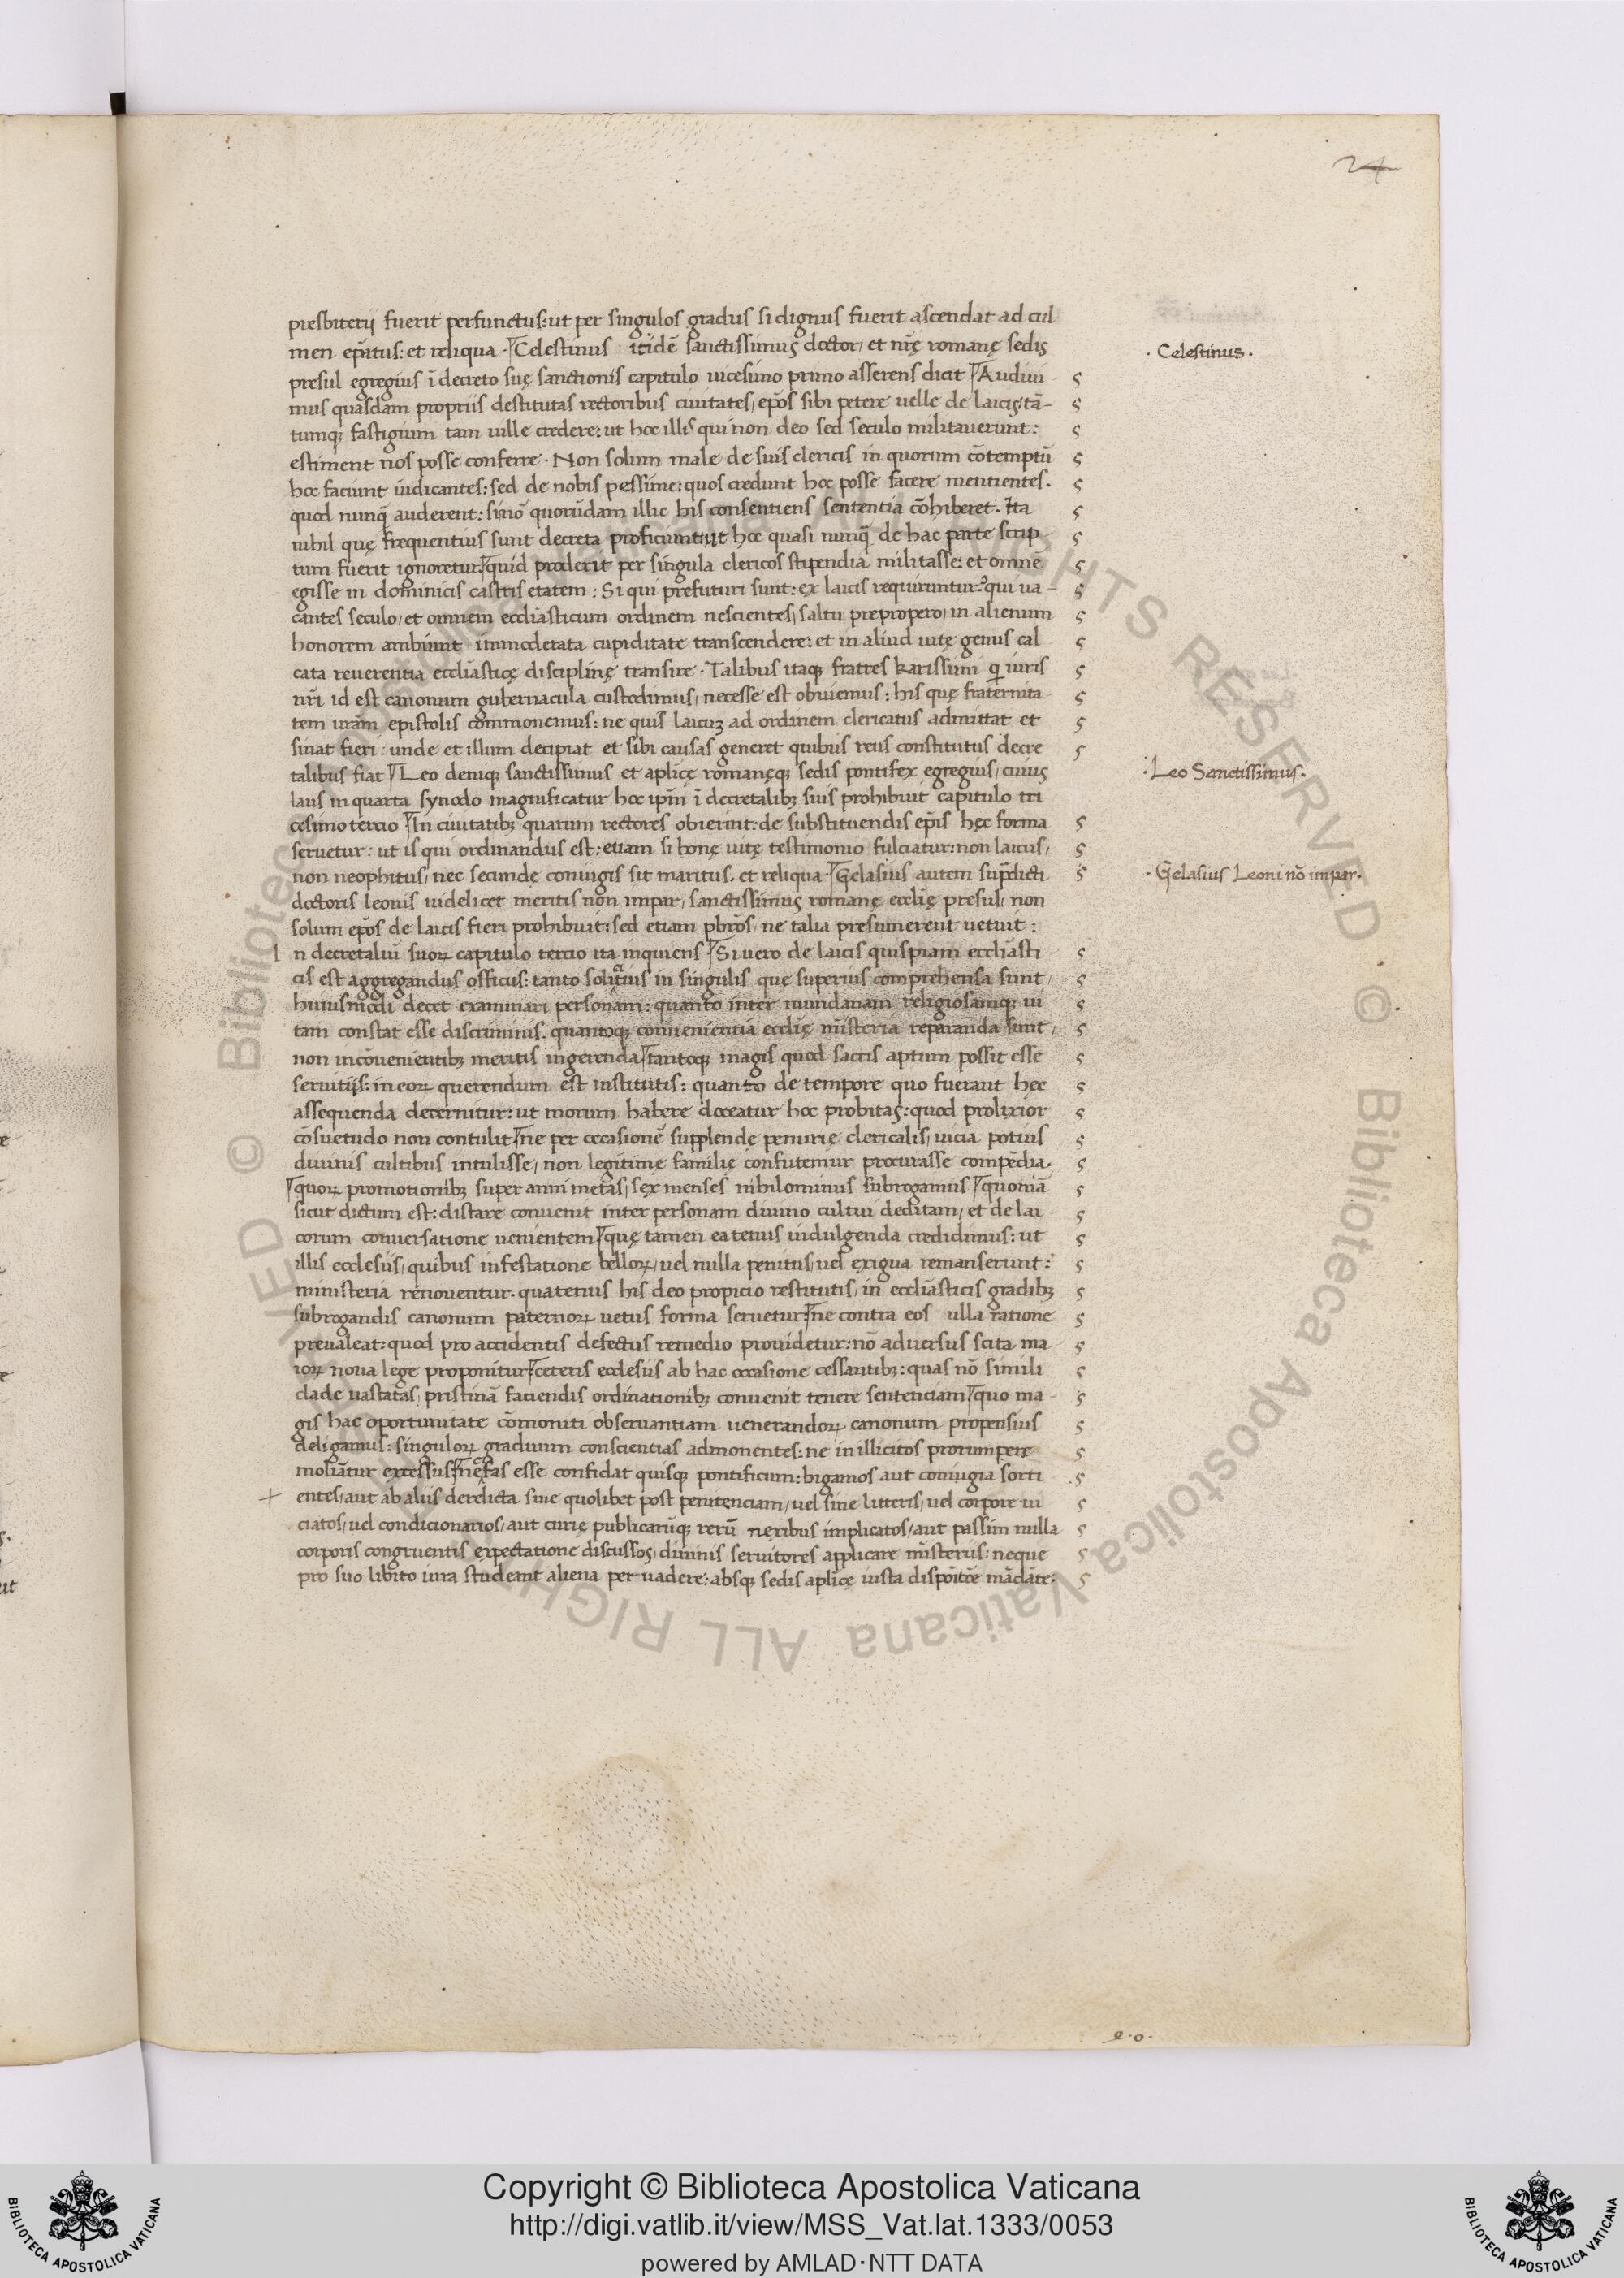 24
presbiterij fuerit perfunctus: ut per singulos gradus si dignus fuerit ascendat ad cul
men ep̄atus: et reliqua · Celestinus itidē sanctissimus doctor, et nr̄ę romanę sedis
· Celestinus ·
presul egregius ī decreto suę sanctionis capitulo uicesimo primo asserens dicit Audiui
mus quasdam propriis destitutas rectoribus ciuitates, ep̄os sibi petere uelle de laicis: tā-
tumq; fastigium tam uille credere: ut hoc illis qui non deo sed seculo militauerunt:
estiment nos posse conferre · Non solum male de suis clericis in quorum cōtemptū
hoc faciunt iudicantes: sed de nobis pessime: quos credunt hoc posse facere mentientes.
quod nunq̄ auderent: si nō quorūdam illic his consentiens sententia cōhiberet. Ita
nihil quę frequentius sunt decreta proficiunt ut hoc quasi nunq̄ de hac parte scrip
tum fuerit ignoretur. quid proderit per singula clericos stipendia militasse: et omnē
egisse in dominicis castris etatem: Si qui prefuturi sunt: ex laicis requiruntur? qui ua-
cantes seculo, et omnem eccliāsticum ordinem nescientes, saltu prepropero, in alienum
honorem ambiunt immoderata cupiditate transcendere: et in aliud uitę genus cal
cata reuerentia eccliāsticę disciplinę transire · Talibus itaq; fratres karissimi qi iuris
nr̄i id est canonum gubernacula custodimus, necesse est obuiemus: his quę fraternita
tem uram̄ epistolis commonemus: ne quis laicuz ad ordinem clericatus admittat et
sinat fieri: unde et illum decipiat et sibi causas generet quibus reus constitutus decre
talibus fiat Leo deniq; sanctissimus et aplicę romanęq; sedis pontifex egregius, cuius
· Leo Sanctissimus ·
laus in quarta synodo magnificatur hoc ipm̄ ī decretalib; suis prohibuit capitulo tri
cesimo tercio In ciuitatib; quarum rectores obierint: de substituendis ep̄is hęc forma
seruetur: ut is qui ordinandus est: etiam si bonę uitę testimonio fulciatur: non laicus,
non neophitus, nec secundę coniugis sit maritus. et reliqua · Gelasius autem sup̄dicti
· Gelasius Leoni nō impar ·
doctoris leonis uidelicet meritis non impar, sanctissimus romanę ecclię presul, non
solum ep̄os de laicis fieri prohibuit: sed etiam pbr̄os, ne talia presumerent uetuit:
I n decretaliū suoꝝ capitulo tercio ita inquiens Si uero de laicis quispiam eccliāsti
cis est aggregandus officiis: tanto solicitius in singulis quę superius comprehensa sunt,
huiusmodi decet examinari personam: quanto inter mundanam religiosamq; ui
tam constat esse discriminis. quantoq; conuenientia ecclię misteria reparanda sunt,
non inconuenientib; meritis ingerenda tantoq; magis quod sacris aptum possit esse
seruitijs: in eoꝝ querendum est institutis: quanto de tempore quo fuerant hęc
assequenda decernitur: ut morum habere doceatur hoc probitas: quod prolixior
cōsuetudo non contulit ne per occasionē supplendę penurię clericalis, uicia potius
diuinis cultibus intulisse, non legitimę familię confutemur procurasse compēdia.
quoꝝ promotionib; super anni metas, sex menses nihilominus subrogamus quoniā
sicut dictum est: distare conuenit inter personam diuino cultui deditam, et de lai
corum conuersatione uenientem quę tamen ea tenus indulgenda credidimus: ut
illis ecclesiis, quibus infestatione belloꝝ, uel nulla penitus, uel exigua remanserunt:
ministeria renouentur. quatenus his deo propicio restitutis, in eccliāsticis gradib;
subrogandis canonum paternoꝝ uetus forma seruetur ne contra eos ulla ratione
preualeat: quod pro accidentis defectus remedio prouidetur: nō aduersus scita ma
ioꝝ noua lege proponitur ceteris ecclesiis ab hac occasione cessantib;: quas nō simili
clade uastatas, pristinā faciendis ordinationib; conuenit tenere sentenciam quo ma-
gis hac oportunitate cōmoniti obseruantiam uenerandoꝝ canonum propensius
deligamus: singuloꝝ graduum conscientias admonentes: ne in illicitos prorumpere
moliātur excessus nefas esse confidat quisq; pontificum: bigamos aut coniugia sorti
entes, aut ab aliis derelicta siue quolibet post penitenciam, uel sine litteris, uel corpore ui
ciatos, uel condicionarios, aut curię publicarūq; rerū nexibus implicatos, aut passim nulla
corporis congruentis expectatione discussos, diuinis seruitores applicare misteriis: neque
pro suo libito iura studeant aliena per uadere: absq; sedis aplicę iusta dispoītōe mādāte:
e·o·
Copyright © Biblioteca Apostolica Vaticana
http://digi.vatlib.it/view/MSS_Vat.lat.1333/0053
powered by AMLAD·NTT DATA
BIBLIOTECA APOSTOLICA VATICANA
BIBLIOTECA APOSTOLICA VATICANA